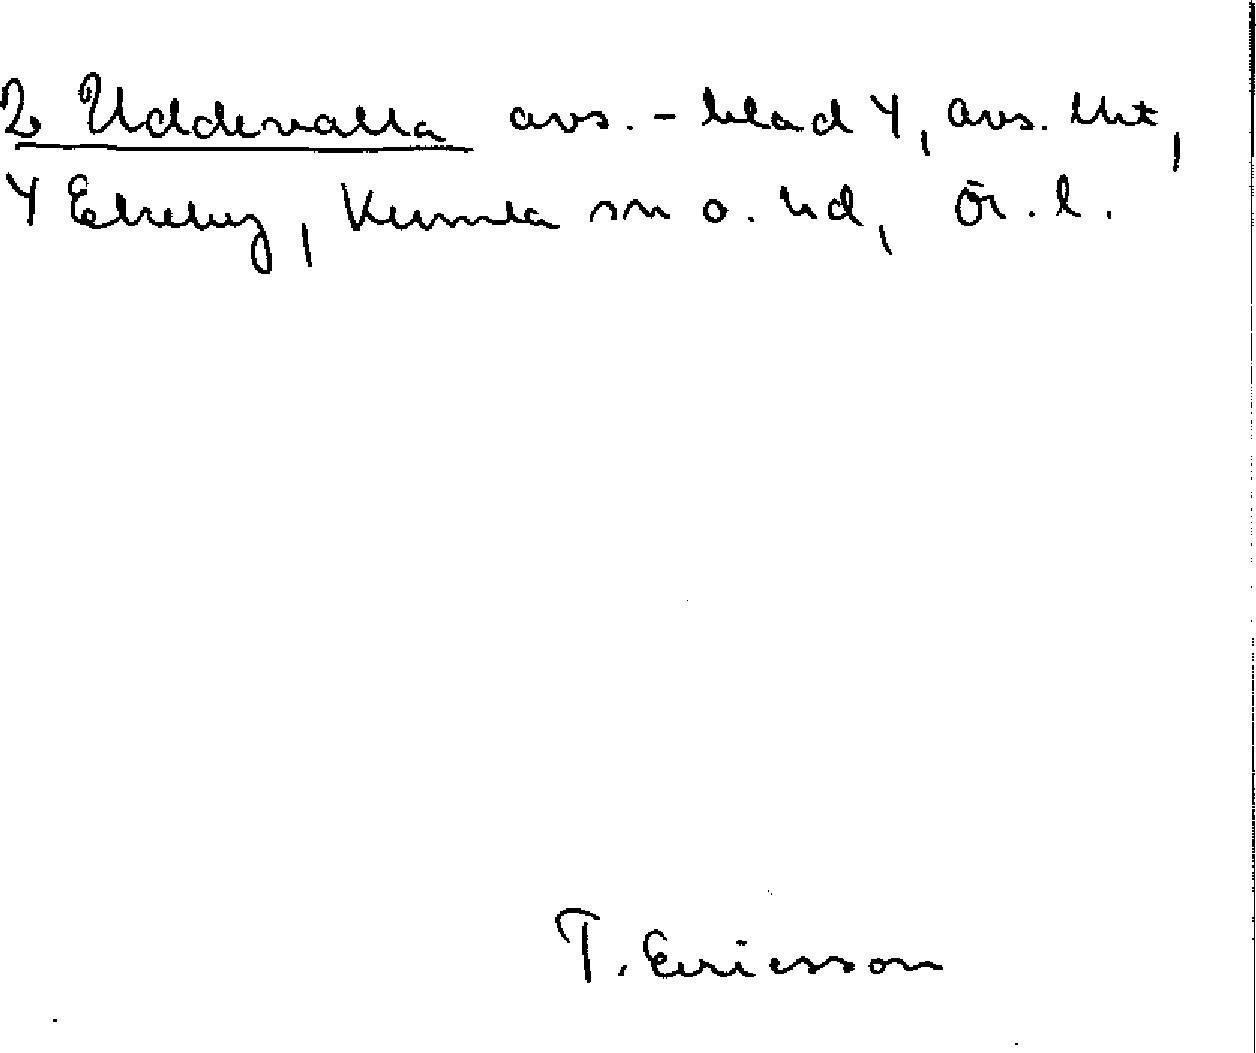 2 Uddevalla avs. - blad 4, avs. lht,
4 Ekeby, Kumla sn o. hd, Ör. l.
T. Ericsson